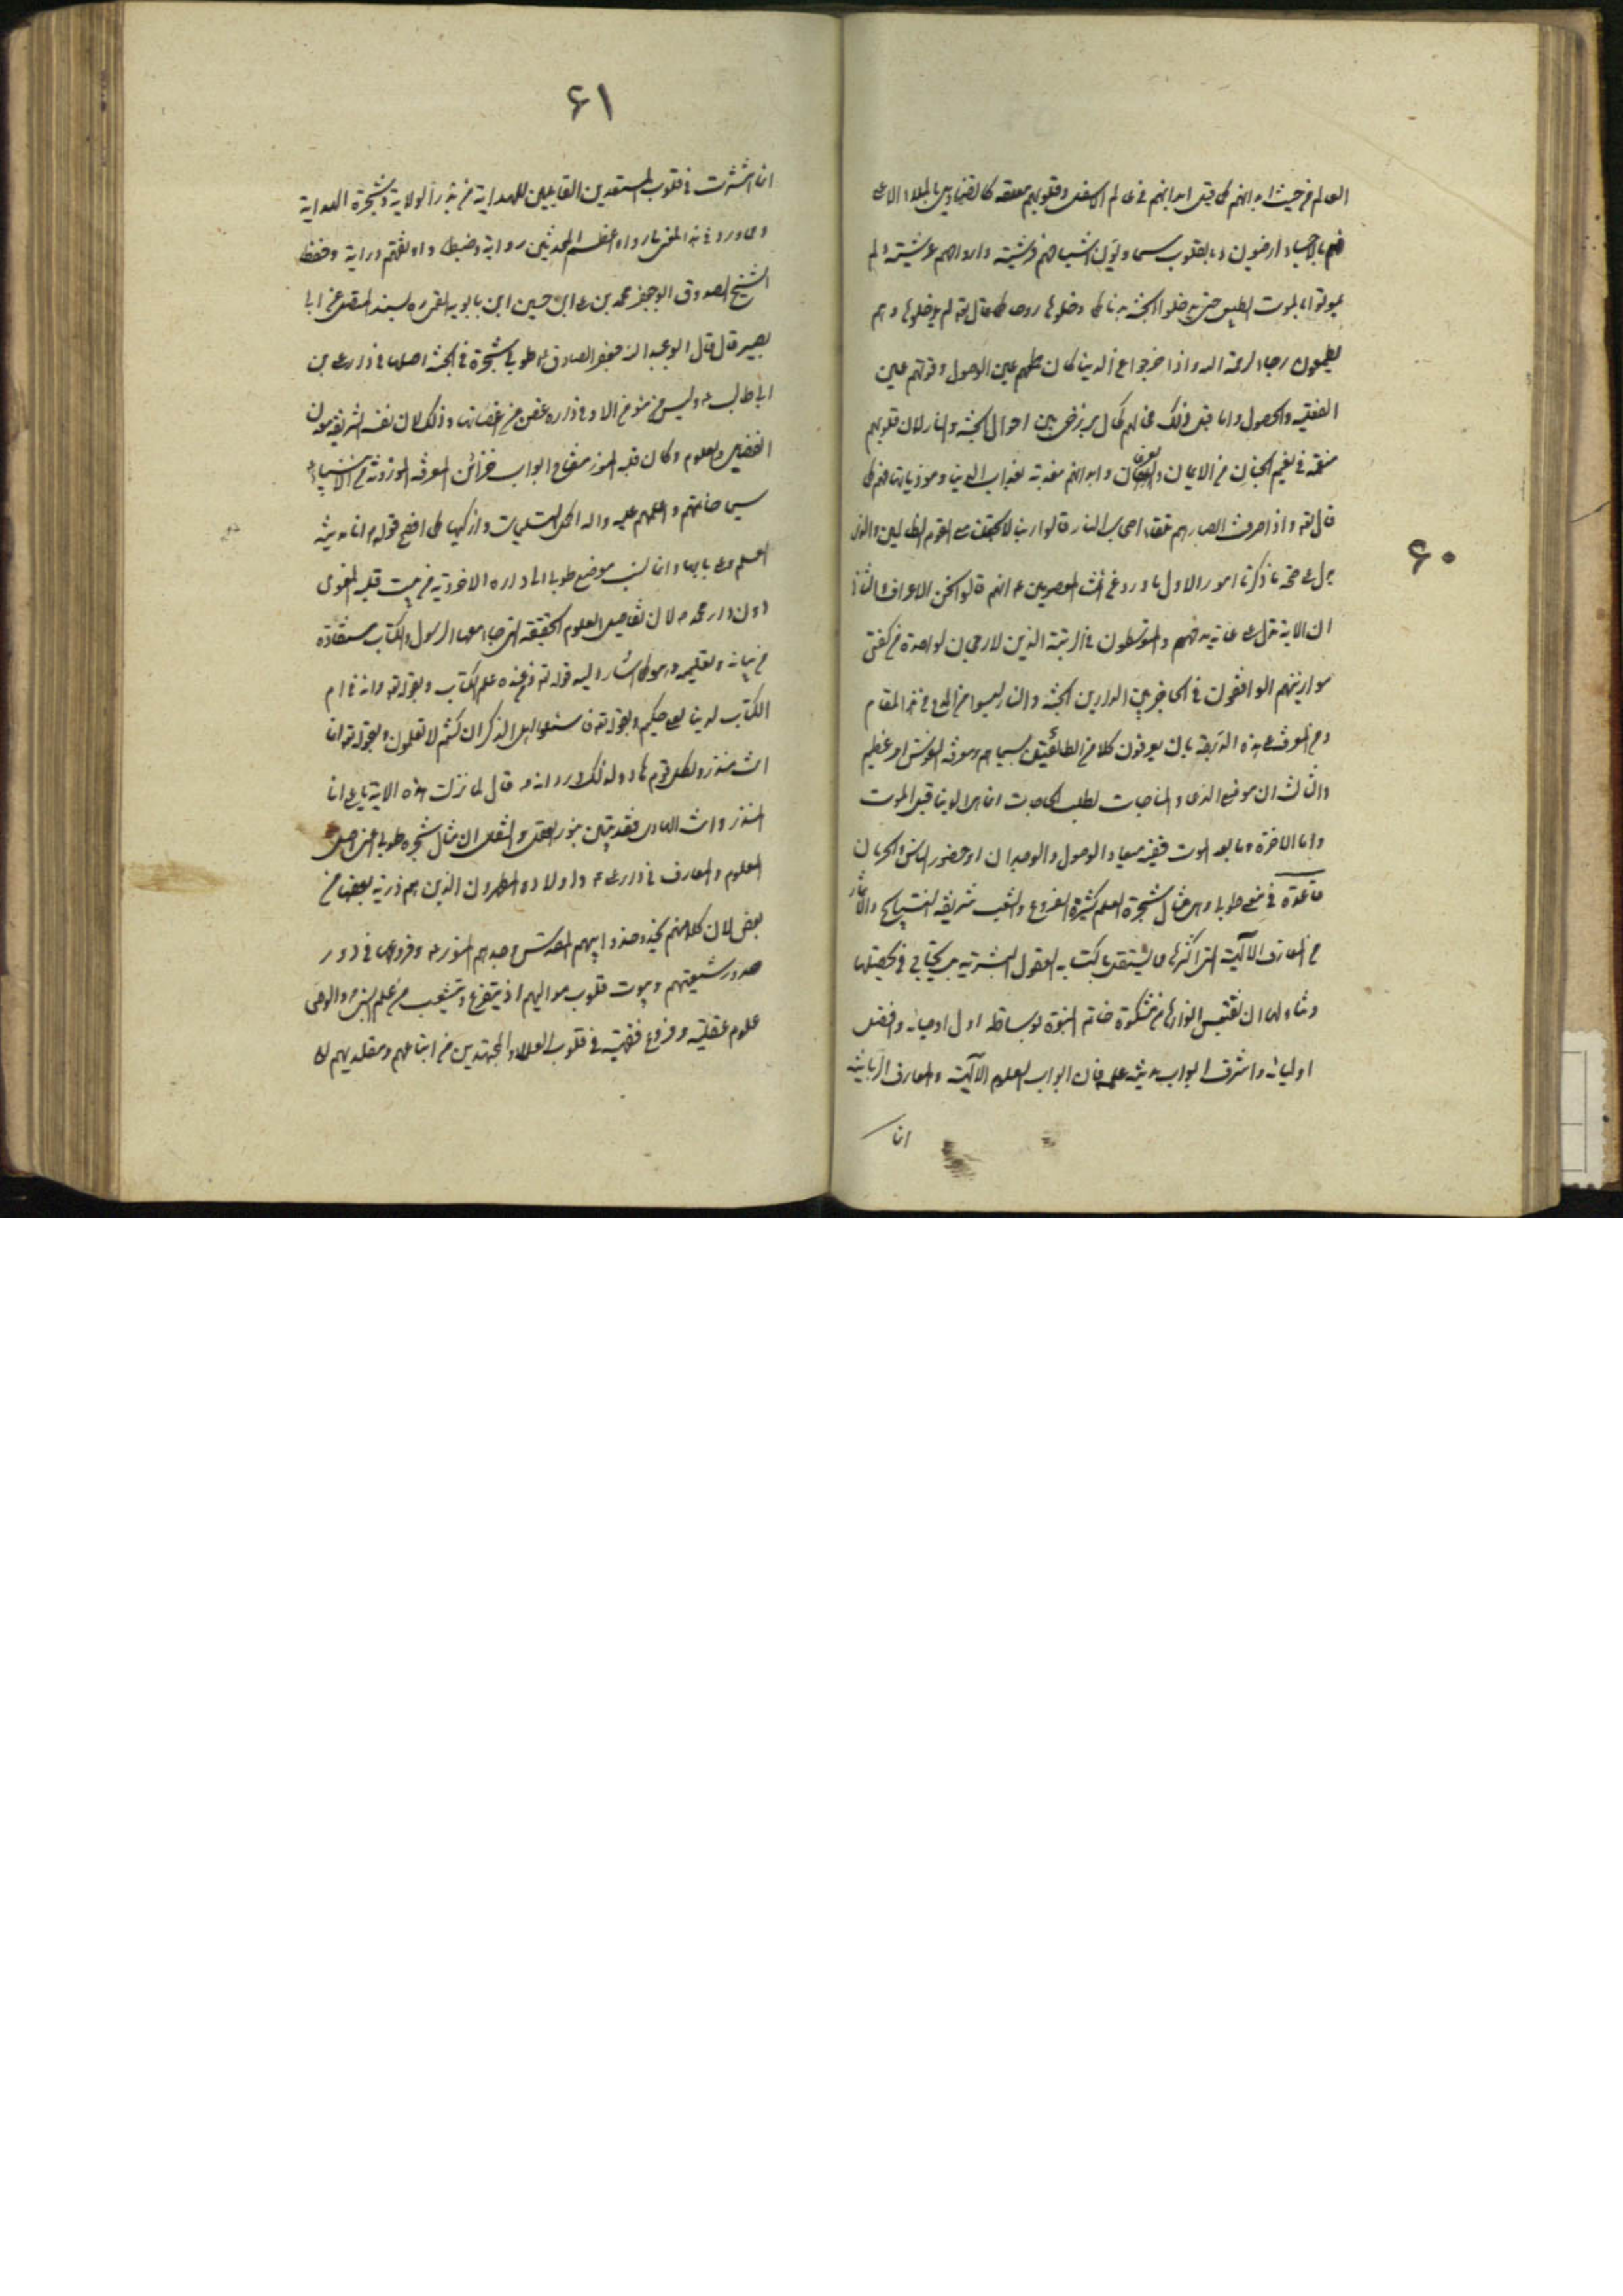 ۶۰
العالم من حيث ابدانهم كما قيل ابدانهم في عالم الاسفل وقلوبهم معلقة كالقناديل بالملاء الاعلى
فهم بالاجساد ارضيون وبالقلوب سماويون اشباحهم فرشية وارواحهم عرشية ولم
يموتوا بالموت الطبيعي حتى يدخلوا الجنة بدنا كما دخلوها روحا كما قال تعه لم يدخلوها وهم
يطمعون رجاء لرحمة الله واذا خرجوا عن الدنيا كان طمعهم عين الوصول وقوتهم عين
الفعلية والحصول واما قبل ذلك فحالهم كحال برزخي بين احوال الجنة والنار لان قلوبهم
منعمة في نعيم الجنان من الايمان والعرفان وابدانهم معذبة بعذاب الدنيا وموذياتها فهم كما
قال تعه واذا صرفت ابصارهم تلقاء اصحاب النار قالوا ربنا لا تجعلنا مع القوم الظالمين والذي
يدل على صحة ما ذكرنا امور الاول ما ورد عن ائمتنا المعصومين ع انهم قالوا نحن الاعراف والثاني
ان الاية تدل على غاية مدحهم والمتوسطون في الرتبة الذين لا رجحان لواحدة من كفتي
موازينهم الواقفون في الحاجز بين الدارين الجنة والنار ليسوا من المدح في هذا المقام
ومن المعرفة بهذه المرتبة بان يعرفون كلا من الطائفتين بسيماهم ومعرفة النفوس امر عظيم
والثالث ان موضع الدعاء والمناجات لطلب الحاجات انما هو الدنيا قبل الموت
واما الاخرة وما بعد الموت ففيه ميعاد الوصول والوجدان او حضور الياس والحرمان
قاعدة في معنى طوبى وهي مثال شجرة العلم كثيرة الفروع والشعب شريفة النتايج والاثمار
من المعارف الالهية التي اكثرها مما لا يستقل باكتسابه العقول البشرية بل يحتاج في تحصيلها
وتناولها ان تقتبس انوارها من مشكوة خاتم النبوة بوساطة اول اوصيائه وافضل
اوليائه واشرف ابواب مدينة علمه فان ابواب العلوم الالهية والمعارف الربانية
انما
۶۱
انما انتشرت في قلوب المستعدين القابلين للهداية من بذر الولاية وشجرة الهداية
ومما ورد في هذا المعنى ما رواه اعظم المحدثين رواية وضبطا واوثقهم دراية وحفظا
الشيخ الصدوق ابو جعفر محمد بن على ابن حسين ابن بابويه القمى ره بسنده المتصل عن ابى
بصير قال قال ابو عبد الله جعفر الصادق ع طوبى شجرة في الجنة اصلها في دار على بن
ابى طالب ع وليس من مؤمن الا وفى داره غصن من اغصانها وذلك لان نفسه الشريفة معدن
الفضايل والعلوم وكان قلبه المنور مفتاح ابواب خزائن المعرفة الموروثة من الانبياء ع
سيما خاتمهم واعلمهم عليه واله اكمل التسليمات وازكيها كما افصح قوله ص انا مدينة
العلم وعلى بابها وانما نسب موضع طوبى الى داره الاخروية من حيث قلبه المعنوى
دون دار محمد ص لان تفاصيل العلوم الحقيقة التي جاء معها الرسول والكتاب مستفادة
من بيانه وتعليمه وهو كما اشار اليه قوله تعه ومن عنده علم الكتاب وبقوله تعه وانه في ام
الكتاب لدينا لعلى حكيم وبقوله تعه فسئلوا اهل الذكر ان كنتم لا تعلمون وبقوله تعه انما
انت منذر ولكل قوم هاد ولذلك ورد انه ص قال لما نزلت هذه الاية يا على انا
المنذر وانت الهادى فقد تبين بنور العقل والنقل ان مثال شجرة طوبى اعنى اصل
العلوم والمعارف في دار على ع واولاده المطهرون الذين هم ذرية بعضها من
بعض لان كلا منهم يحذو حذو ابيهم المقدس وجدهم المنور ع وفروعها في دور
صدور شيعتهم وبيوت قلوب مواليهم اذ يتفرع وتشعب من علم النبى والوصى
علوم عقلية وفروع فقهية في قلوب العلماء والمجتهدين من اتباعهم ومقلديهم الى